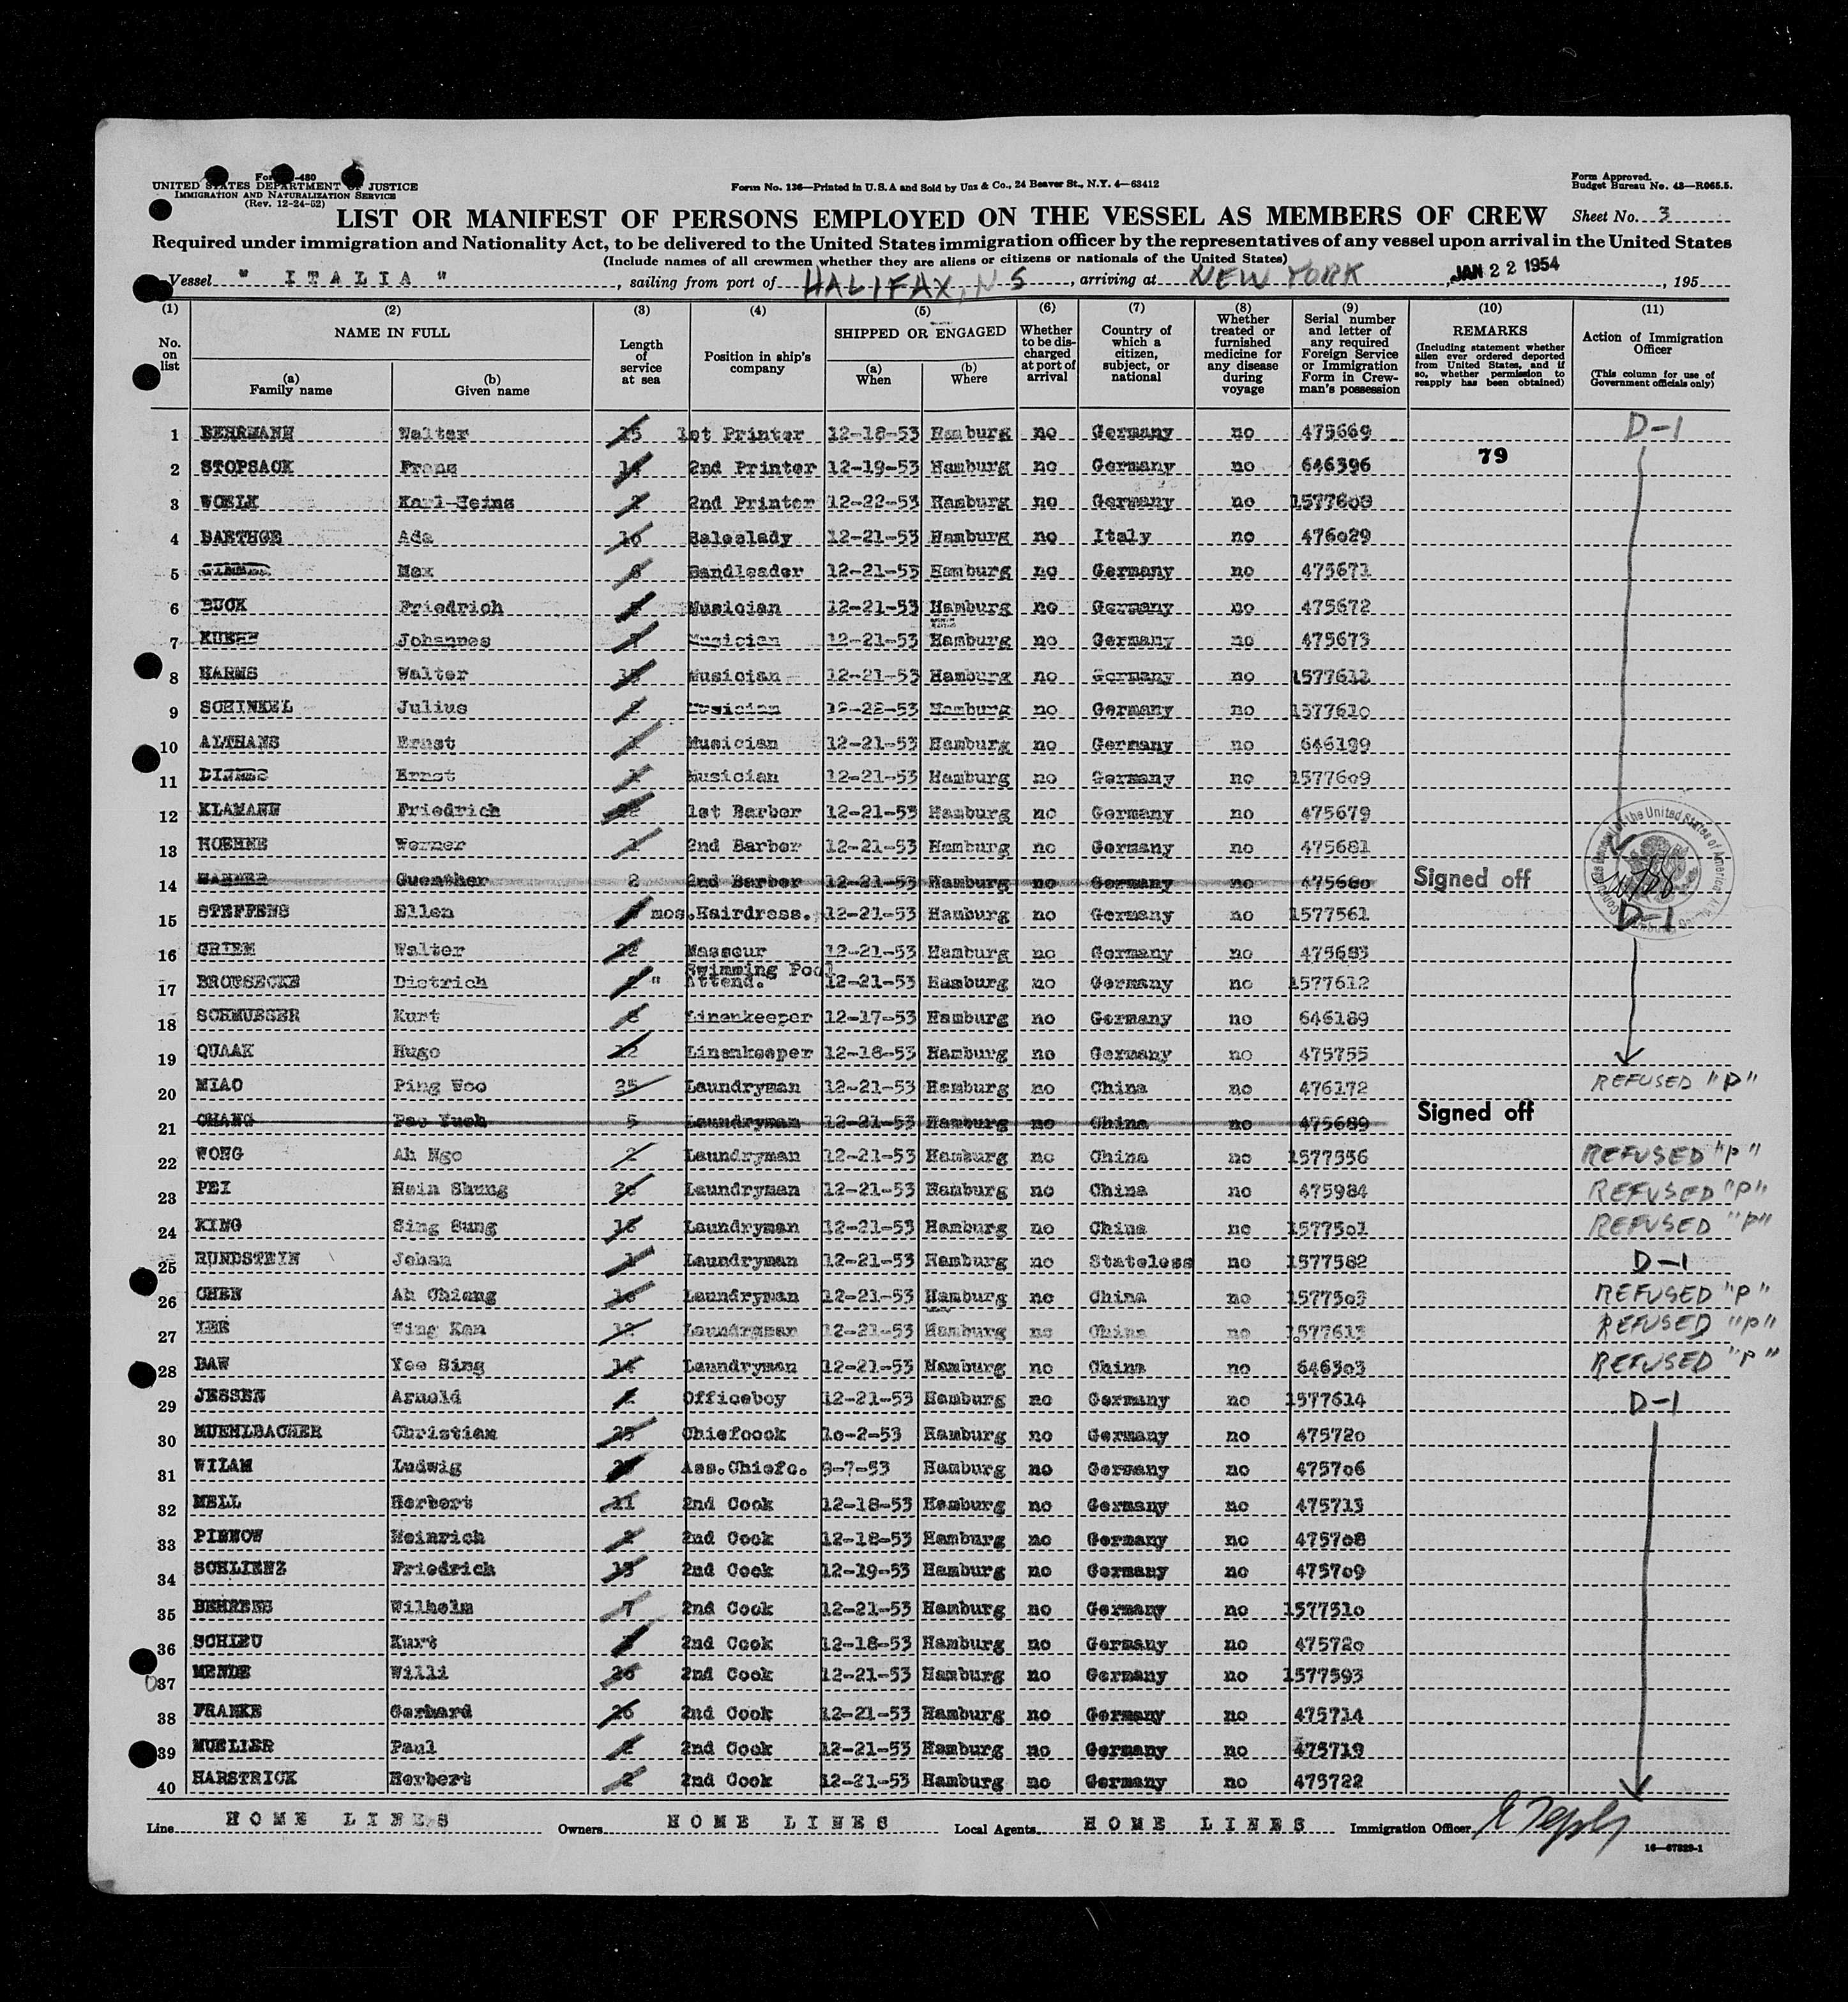 Form I-480
UNITED STATES DEPARTMENT OF JUSTICE
IMMIGRATION AND NATURALIZATION SERVICE
(Rev. 12-24-52)
Form No. 136—Printed in U.S.A and Sold by Unz & Co., 24 Beaver St., N.Y. 4—63412
Form Approved.
Budget Bureau No. 43—R065.5.
LIST OR MANIFEST OF PERSONS EMPLOYED ON THE VESSEL AS MEMBERS OF CREW
Sheet No. 3
Required under immigration and Nationality Act, to be delivered to the United States immigration officer by the representatives of any vessel upon arrival in the United States
(Include names of all crewmen whether they are aliens or citizens or nationals of the United States)
Vessel " ITALIA ", sailing from port of HALIFAX, N S, arriving at NEW YORK, JAN 22 1954, 195
(1) No. on list
(2) NAME IN FULL
(a) Family name
(b) Given name
(3) Length of service at sea
(4) Position in ship's company
(5) SHIPPED OR ENGAGED
(a) When
(b) Where
(6) Whether to be discharged at port of arrival
(7) Country of which a citizen, subject, or national
(8) Whether treated or furnished medicine for any disease during voyage
(9) Serial number and letter of any required Foreign Service or Immigration Form in Crewman's possession
(10) REMARKS
(Including statement whether alien ever ordered deported from United States, and if so, whether permission to reapply has been obtained)
(11) Action of Immigration Officer
(This column for use of Government officials only)
1 BEHRMANN Walter 15 1st Printer 12-18-53 Hamburg no Germany no 475669 D-1
2 STOPSACK Franz 14 2nd Printer 12-19-53 Hamburg no Germany no 646396 79
3 WOELK Karl-Heinz 2nd Printer 12-22-53 Hamburg no Germany no 1577608
4 BARTHGE Ada 10 Saleslady 12-21-53 Hamburg no Italy no 476029
5 Max Bandleader 12-21-53 Hamburg no Germany no 475671
6 BUCK Friedrich Musician 12-21-53 Hamburg no Germany no 475672
7 Johannes Musician 12-21-53 Hamburg no Germany no 475673
8 HARMS Walter Musician 12-21-53 Hamburg no Germany no 1577611
9 SCHINKEL Julius Musician 12-22-53 Hamburg no Germany no 1577610
10 ALTHANS Ernst Musician 12-21-53 Hamburg no Germany no 646199
11 Ernst Musician 12-21-53 Hamburg no Germany no 1577609
12 KLAMANN Friedrich 1st Barber 12-21-53 Hamburg no Germany no 475679
13 HOEHNE Werner 2nd Barber 12-21-53 Hamburg no Germany no 475681
14 Guenther 2 2nd Barber 12-21-53 Hamburg no Germany no 475680 Signed off
15 STEFFENS Ellen mos. Hairdress. 12-21-53 Hamburg no Germany no 1577561 D-1
16 GRIEM Walter Masseur 12-21-53 Hamburg no Germany no 475683
17 Dietrich " Swimming Pool Attend. 12-21-53 Hamburg no Germany no 1577612
18 SCHMUESER Kurt Linenkeeper 12-17-53 Hamburg no Germany no 646189
19 QUAAK Hugo 12 Linenkeeper 12-18-53 Hamburg no Germany no 475755
20 MIAO Ping Woo 25 Laundryman 12-21-53 Hamburg no China no 476172 REFUSED "P"
21 CHANG Pao Yueh 5 Laundryman 12-21-53 Hamburg no China no 475689 Signed off
22 WONG Ah Ngo 2 Laundryman 12-21-53 Hamburg no China no 1577556 REFUSED "P"
23 PEI Hsin Shung Laundryman 12-21-53 Hamburg no China no 475984 REFUSED "P"
24 KING Sing Sung Laundryman 12-21-53 Hamburg no China no 1577501 REFUSED "P"
25 RUNDSTEIN Johan 1 Laundryman 12-21-53 Hamburg no Stateless no 1577582 D-1
26 CHEN Ah Chiang Laundryman 12-21-53 Hamburg no China no 1577503 REFUSED "P"
27 LEE Wing Kan 12 Laundryman 12-21-53 Hamburg no China no 1577613 REFUSED "P"
28 BAW Yee Sing 14 Laundryman 12-21-53 Hamburg no China no 646303 REFUSED "P"
29 JESSEN Arnold Officeboy 12-21-53 Hamburg no Germany no 1577614 D-1
30 MUEHLBACHER Christian 25 Chiefcook 10-2-53 Hamburg no Germany no 475720
31 WILAM Ludwig Ass.Chiefc. 8-7-53 Hamburg no Germany no 475706
32 MELL Herbert 11 2nd Cook 12-18-53 Hamburg no Germany no 475713
33 PINNOW Heinrich 2nd Cook 12-18-53 Hamburg no Germany no 475708
34 SCHLIENZ Friedrich 2nd Cook 12-19-53 Hamburg no Germany no 475709
35 BEHRENS Wilhelm 7 2nd Cook 12-21-53 Hamburg no Germany no 1577510
36 SCHIEU Kurt 2nd Cook 12-18-53 Hamburg no Germany no 475720
37 MENDE Willi 26 2nd Cook 12-21-53 Hamburg no Germany no 1577593
38 FRANKE Gerhard 26 2nd Cook 12-21-53 Hamburg no Germany no 475714
39 MUELLER Paul 2nd Cook 12-21-53 Hamburg no Germany no 475719
40 HARSTRICK Herbert 2 2nd Cook 12-21-53 Hamburg no Germany no 475722
Line HOME LINES Owners HOME LINES Local Agents HOME LINES Immigration Officer
16—67829-1